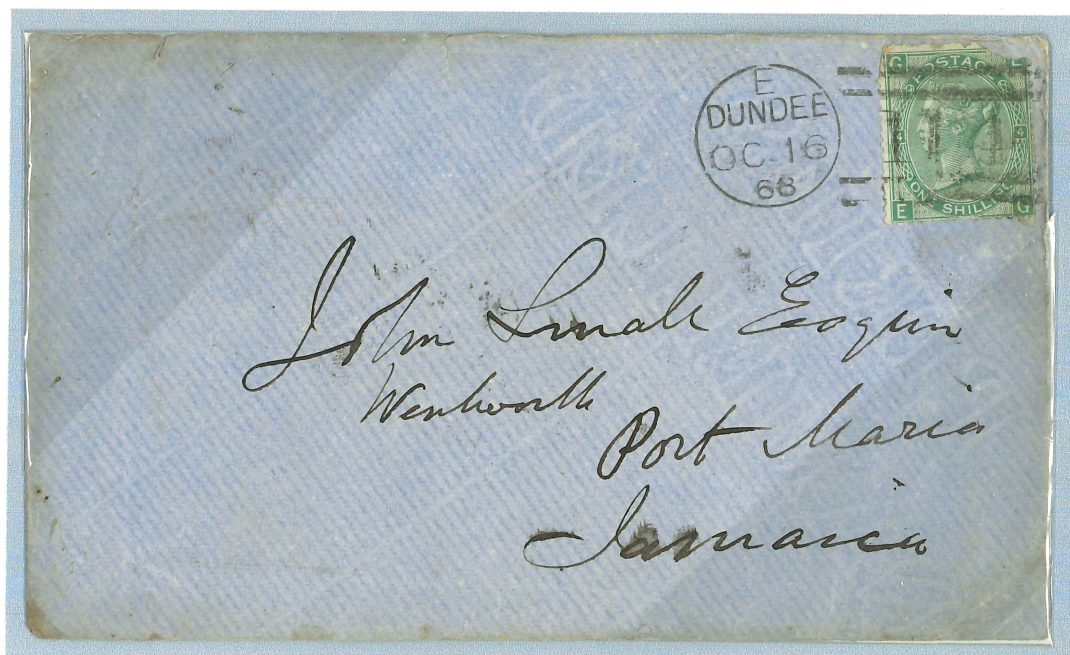 E
DUNDEE
OC 16
68
G E
POSTAGE
4 4
ONE SHILLING
E G
John Small Esquire
Wentworth
Port Maria
Jamaica